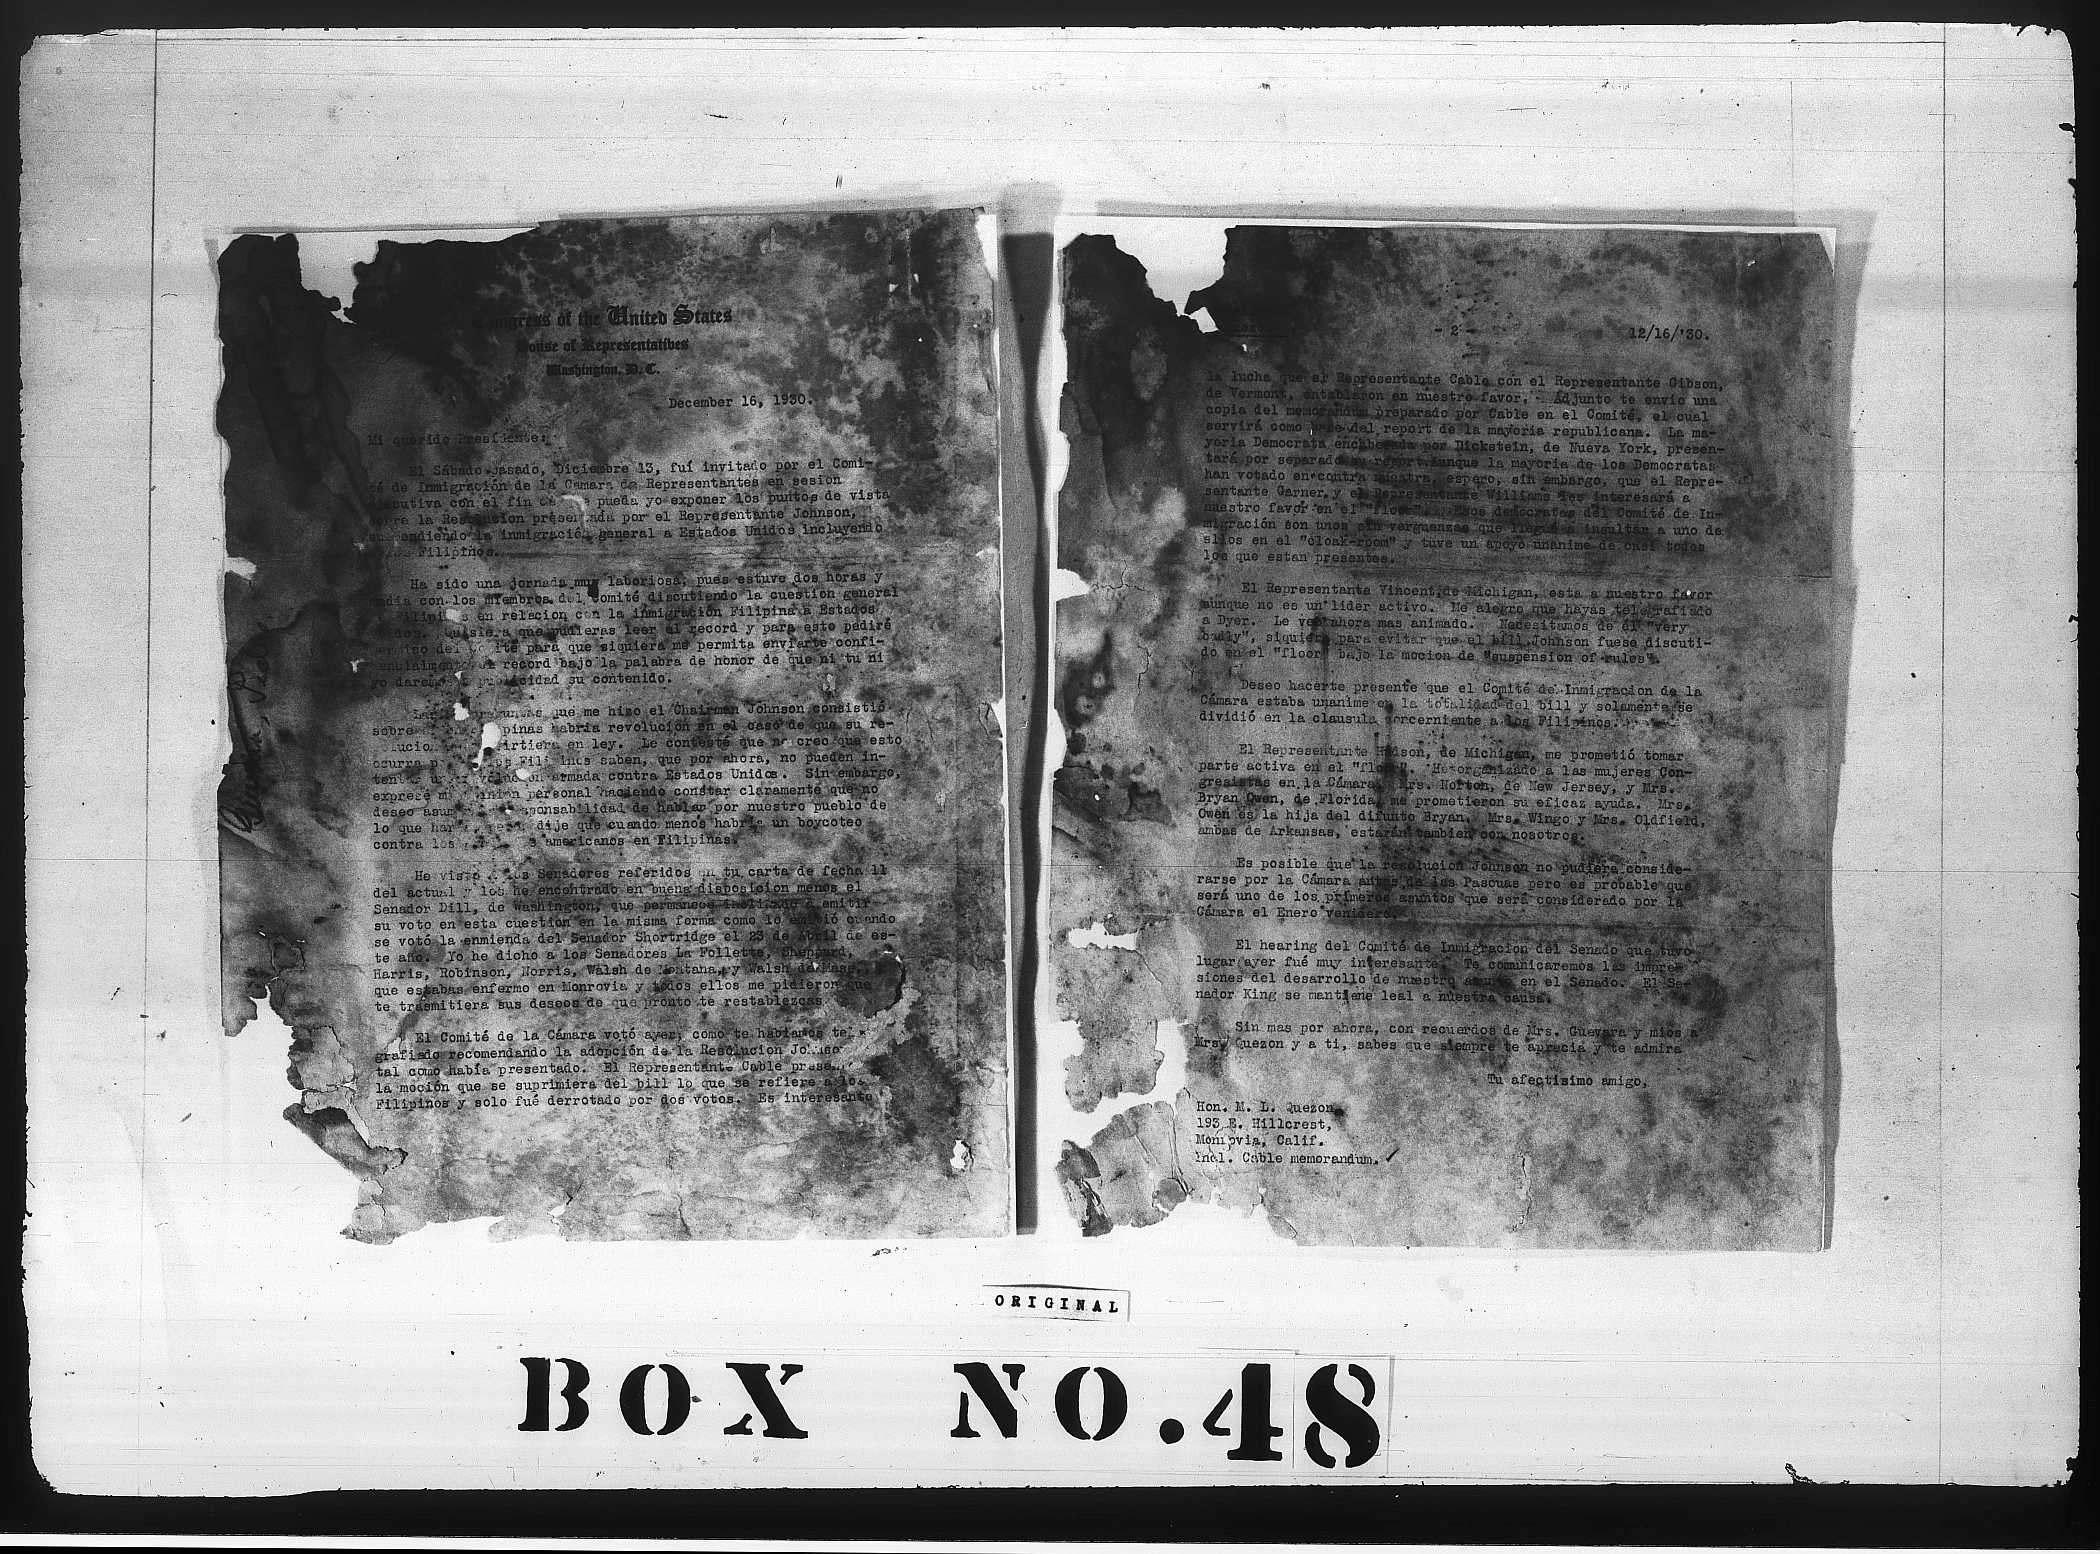 Congress of the United States
House of Representatives
Washington, D. C.
December 16, 1930.
Mi querido Presidente:
El Sábado pasado, Diciembre 13, fuí invitado por el Comi-
té de Inmigración de la Camara de Representantes en sesion
ejecutiva con el fin de que pueda yo exponer los puntos de vista
sobre la Resolucion presentada por el Representante Johnson,
suspendiendo la inmigración general a Estados Unidos incluyendo
Filipinos.
Ha sido una jornada muy laboriosa, pues estuve dos horas y
media con los miembros del Comité discutiendo la cuestion general
Filipinas en relacion con la inmigración Filipina a Estados
Unidos. Quisiera que pudieras leer el record y para esto pediré
permiso del Comité para que siquiera me permita enviarte confi-
dencialmente el record bajo la palabra de honor de que ni tu ni
yo daremos publicidad su contenido.
preguntas que me hizo el Chairman Johnson consistió
sobre pinas habria revolución en el caso de que su re-
solucion irtiera en ley. Le contesté que no creo que esto
ocurra los Filipinos saben, que por ahora, no pueden in-
tentar una revolucion armada contra Estados Unidos. Sin embargo,
expresé mi opinion personal haciendo constar claramente que no
deseo asumir responsabilidad de hablar por nuestro pueblo de
lo que dije que cuando menos habria un boycoteo
contra los americanos en Filipinas.
He visto a los Senadores referidos en tu carta de fecha 11
del actual y los he encontrado en buena disposicion menos el
Senador Dill, de Washington, que permanece inclinado a emitir
su voto en esta cuestion en la misma forma como lo emitió cuando
se votó la enmienda del Senador Shortridge el 23 de Abril de es-
te año. Yo he dicho a los Senadores La Follette, Sheppard,
Harris, Robinson, Norris, Walsh de Montana, y Walsh de Mass.,
que estabas enfermo en Monrovia y todos ellos me pidieron que
te trasmitiera sus deseos de que pronto te restablezcas.
El Comité de la Cámara votó ayer, como te habiamos tele-
grafiado recomendando la adopción de la Resolucion Johnson
tal como había presentado. El Representante Cable presentó
la moción que se suprimiera del bill lo que se refiere a los
Filipinos y solo fué derrotado por dos votos. Es interesante
- 2 -
12/16/'30.
la lucha que el Representante Cable con el Representante Gibson,
de Vermont, entablaron en nuestro favor. Adjunto te envio una
copia del memorandum preparado por Cable en el Comité, el cual
servirá como base del report de la mayoria republicana. La ma-
yoria Democrata encabezada por Dickstein, de Nueva York, presen-
tará por separado su report. Aunque la mayoria de los Democratas
han votado en contra nuestra, espero, sin embargo, que el Repre-
sentante Garner y el Representante Williams les interesará a
nuestro favor en el "floor". Esos democratas del Comité de In-
migración son unos sin verguenzas que llegué a insultar a uno de
ellos en el "cloak-room" y tuve un apoyo unanime de casi todos
los que estan presentes.
El Representante Vincent, de Michigan, esta a nuestro favor
aunque no es un lider activo. Me alegro que hayas telegrafiado
a Dyer. Le veo ahora mas animado. Necesitamos de él "very
badly", siquiera para evitar que el bill Johnson fuese discuti-
do en el "floor" bajo la mocion de "suspension of rules".
Deseo hacerte presente que el Comité de Inmigracion de la
Cámara estaba unanime en la totalidad del bill y solamente se
dividió en la clausula concerniente a los Filipinos.
El Representante Hudson, de Michigan, me prometió tomar
parte activa en el "floor". He organizado a las mujeres Con-
gresistas en la Cámara. Mrs. Norton, de New Jersey, y Mrs.
Bryan Owen, de Florida, me prometieron su eficaz ayuda. Mrs.
Owen es la hija del difunto Bryan. Mrs. Wingo y Mrs. Oldfield,
ambas de Arkansas, estarán tambien con nosotros.
Es posible que la resolucion Johnson no pudiera conside-
rarse por la Cámara antes de las Pascuas pero es probable que
será uno de los primeros asuntos que será considerado por la
Cámara el Enero venidero.
El hearing del Comité de Inmigracion del Senado que tuvo
lugar ayer fué muy interesante. Te comunicaremos las impre-
siones del desarrollo de nuestro asunto en el Senado. El Se-
nador King se mantiene leal a nuestra causa.
Sin mas por ahora, con recuerdos de Mrs. Guevara y mios a
Mrs. Quezon y a ti, sabes que siempre te aprecia y te admira
Tu afectisimo amigo,
Hon. M. L. Quezon,
193 E. Hillcrest,
Monrovia, Calif.
Incl. Cable memorandum.
ORIGINAL
BOX NO. 48